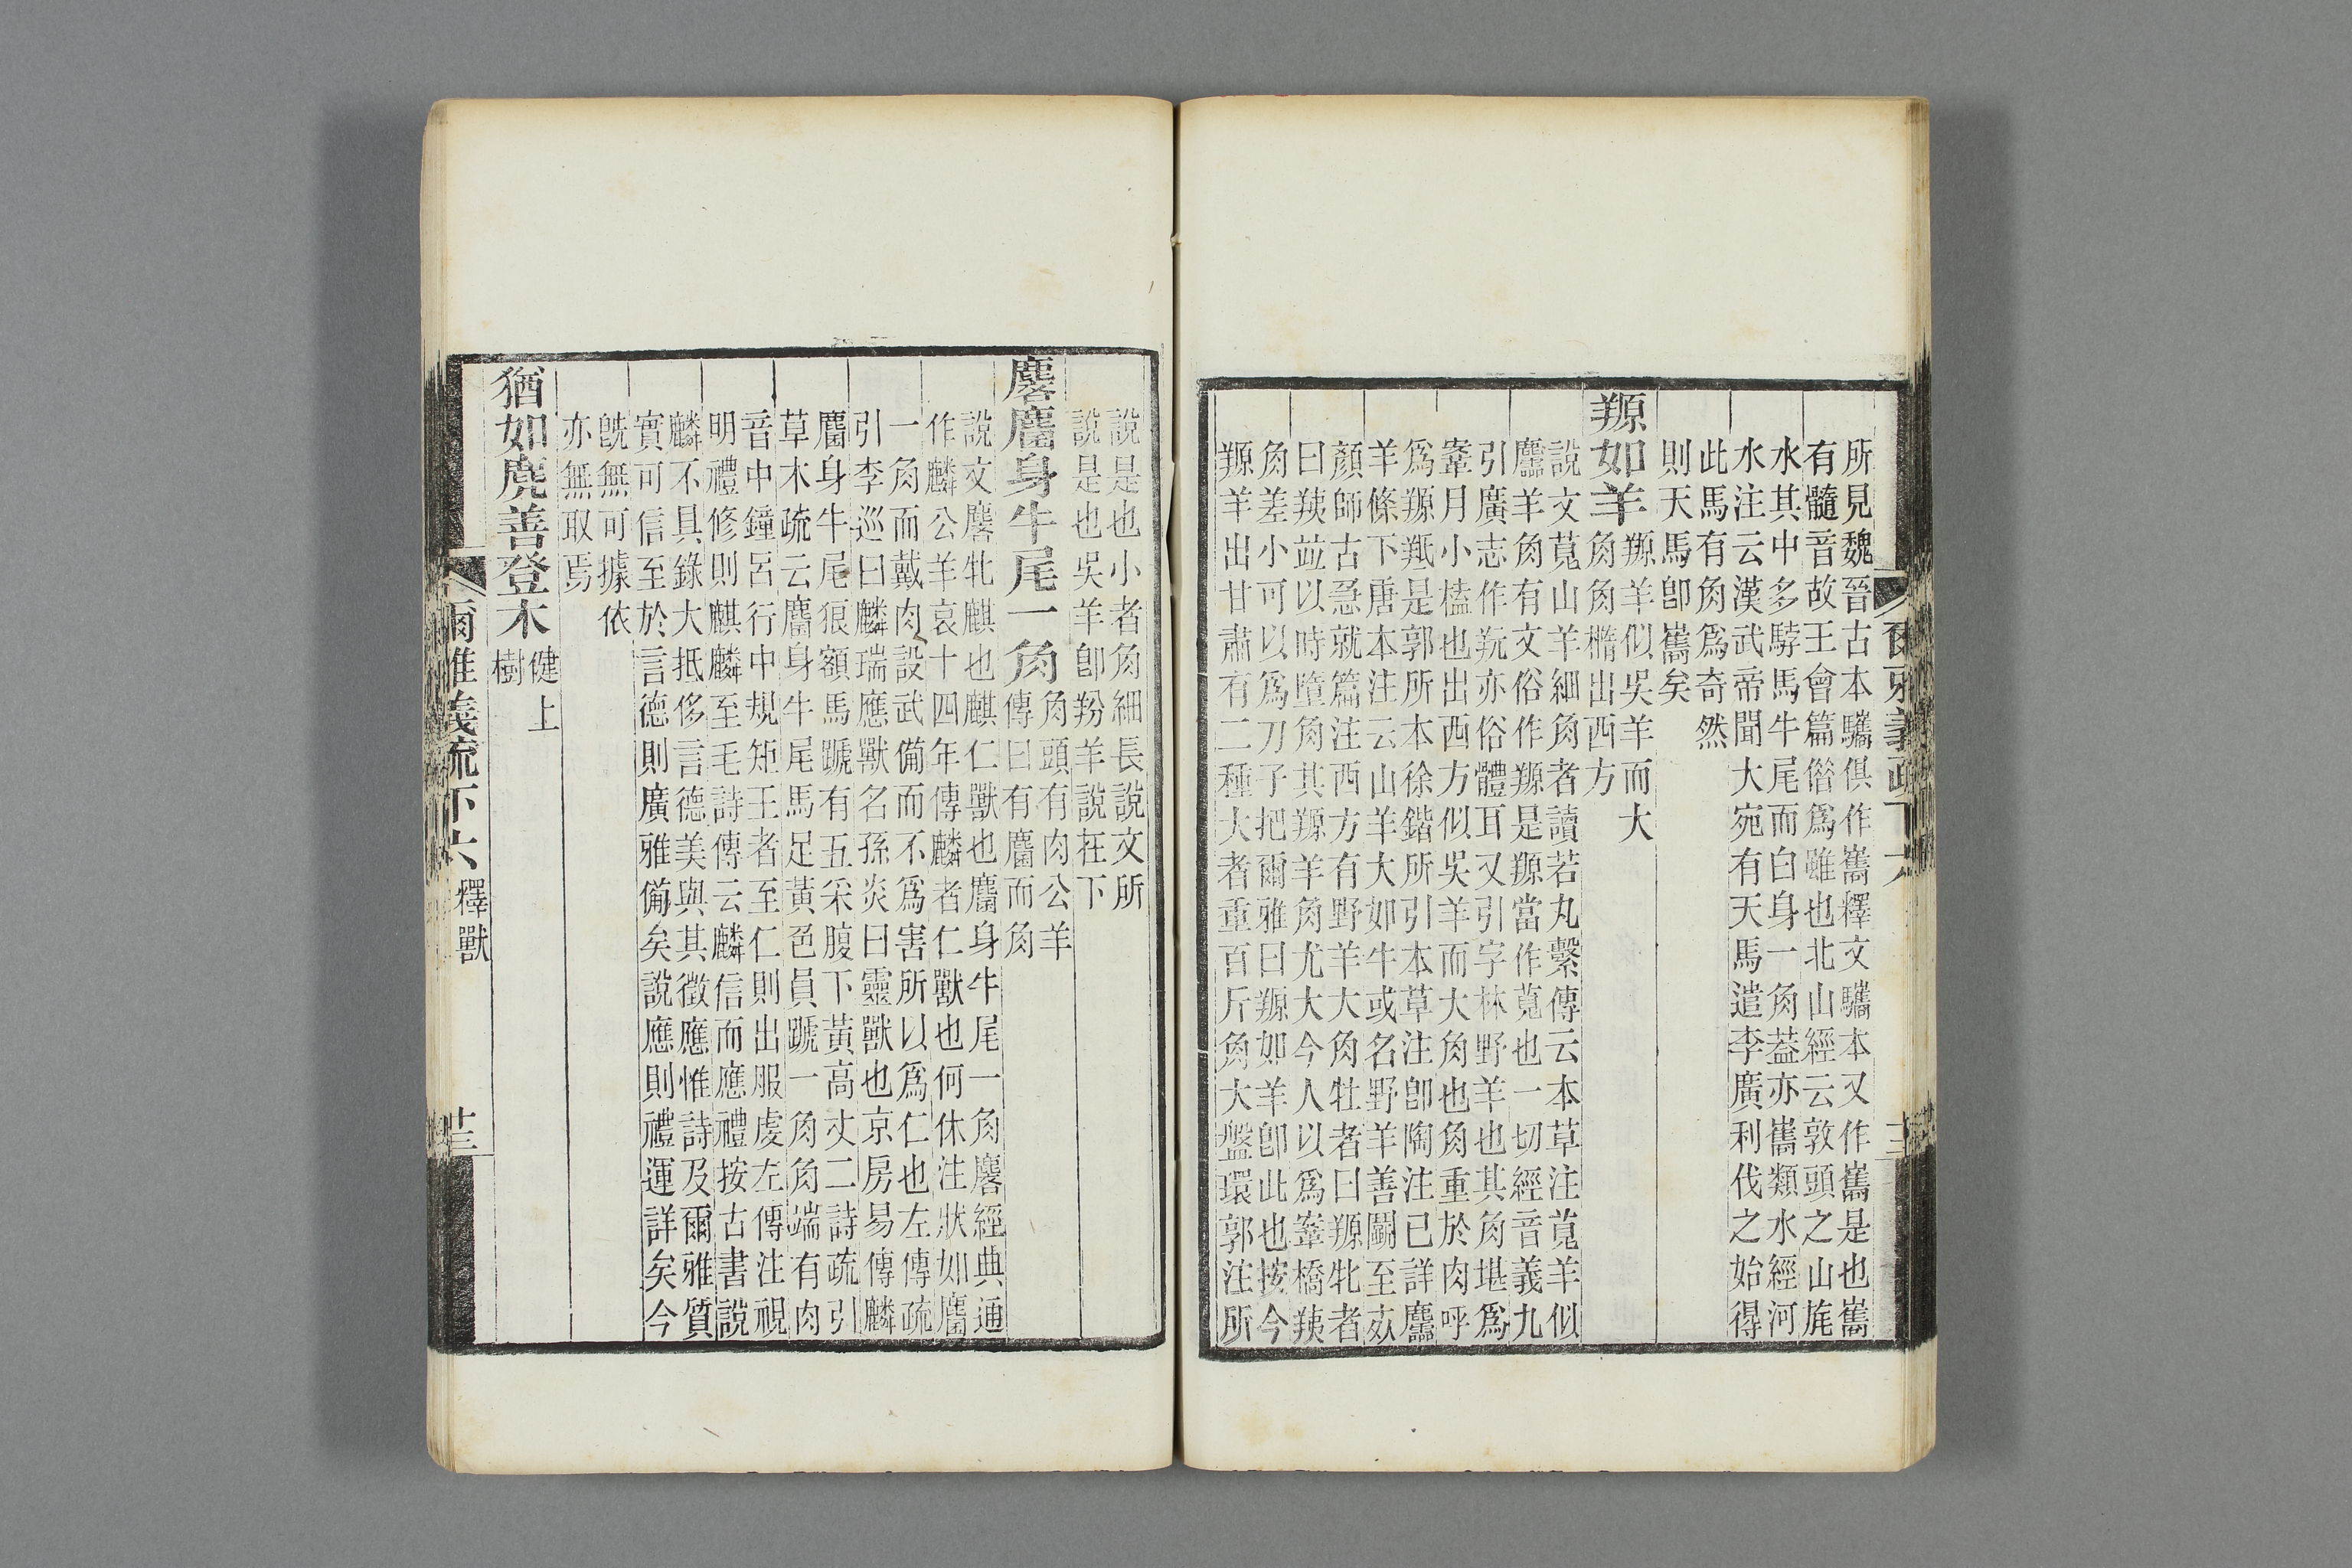 所見魏晉古本驨俱作巂釋文驨本又作巂是也巂
有髓音故王會篇偺爲雖也北山經云敦頭之山旄
水其中多騂馬牛尾而白身一角葢亦巂類水經河
水注云漢武帝聞大宛有天馬遣李廣利伐之始得
此馬有角爲奇然
則天馬卽巂矣
羱如羊
羱羊似吳羊而大
角角橢出西方
說文莧山羊細角者讀若丸繫傳云本草注莧羊似
麢羊角有文俗作羱是羱當作莧也一切經音義九
引廣志作羦亦俗體耳又引字林野羊也其角堪爲
鞌月小榼也出西方似吳羊而大角也角重於肉呼
爲羱羝是郭所本徐鍇所引本草注卽陶注已詳麢
羊條下唐本注云山羊大如牛或名野羊善鬭至死
顏師古急就篇注西方有野羊大角牡者曰羱牝者
曰羠竝以時墮角其羱羊角尤大今人以爲鞌橋羠
角差小可以爲刀子把爾雅曰羱如羊卽此也按今
羱羊出甘肅有二種大者重百斤角大盤環郭注所
說是也小者角細長說文所
說是也吳羊卽羒羊說在下
麐麕身牛尾一角
角頭有肉公羊
傳曰有麕而角
說文麐牝麒也麒仁獸也麕身牛尾一角麐經典通
作麟公羊哀十四年傳麟者仁獸也何休注狀如麕
一角而戴肉設武備而不爲害所以爲仁也左傳疏
引李巡曰麟瑞應獸名孫炎曰靈獸也京房易傳麟
麕身牛尾狼額馬蹏有五采腹下黃高丈二詩疏引
草木疏云麕身牛尾馬足黃色員蹏一角角端有肉
音中鐘呂行中規矩王者至仁則出服虔左傳注視
明禮修則麒麟至毛詩傳云麟信而應禮按古書說
麟不具錄大抵侈言德美與其徵應惟詩及爾雅質
實可信至於言德則廣雅備矣說應則禮運詳矣今
旣無可據依
亦無取焉
猶如麂善登木
健上
樹
爾雅義疏下六 釋獸